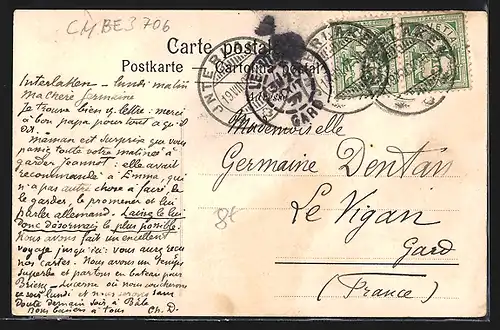 CMBE3706
Carte postale
Postkarte – Cartolina postale
Interlaken – lundi matin
Ma chère Germaine
Je trouve bien ta lettre : merci
à bon papa pour tout ce qu'il
dit.
maman est surprise que vous
passiez toute votre matinée à
garder Jeannot : elle avait
recommandé à Emma, qui
n'a pas autre chose à faire, de
le garder, le promener et lui
parler allemand. Laissez le lui
donc désormais le plus possible.
Nous avons fait un excellent
voyage jusqu'ici : vous avez reçu
nos cartes. Nous avons un temps
superbe et partons en bateau pour
Brienz – Lucerne où nous coucherons
ce soir lundi et nous serons sans
doute demain soir à Bâle
Bons baisers à tous Ch. D.
Mademoiselle
Germaine Dentan
Le Vigan
Gard
(France)
8t
HELVETIA
GARD